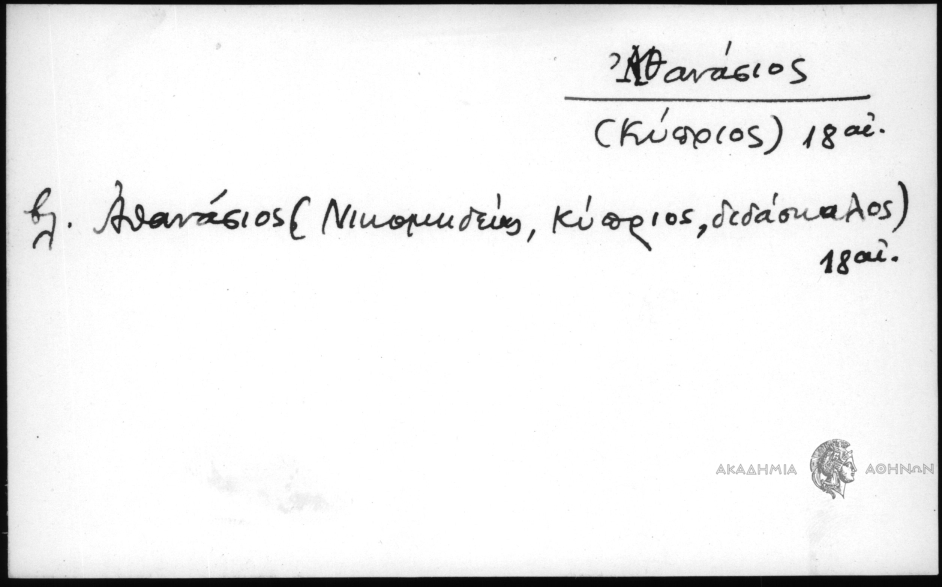 Ἀθανάσιος
(Κύπριος) 18 αἰ.
βλ. Ἀθανάσιος (Νικομηδείας, Κύπριος, διδάσκαλος)
18 αἰ.
ΑΚΑΔΗΜΙΑ ΑΘΗΝΩΝ